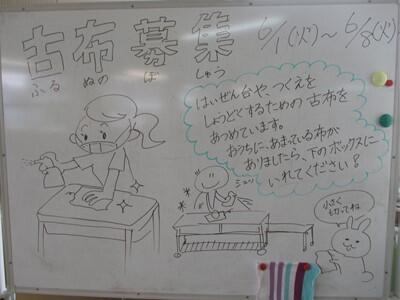 古布募集
ふる ぬの ぼ しゅう
6/1(火)~6/8(火)
はいぜん台や、つくえを
しょうどくするための古布を
あつめています。
おうちに、あまっている布が
ありましたら、下のボックスに
いれてください!
シュッ
小さく
切ってね